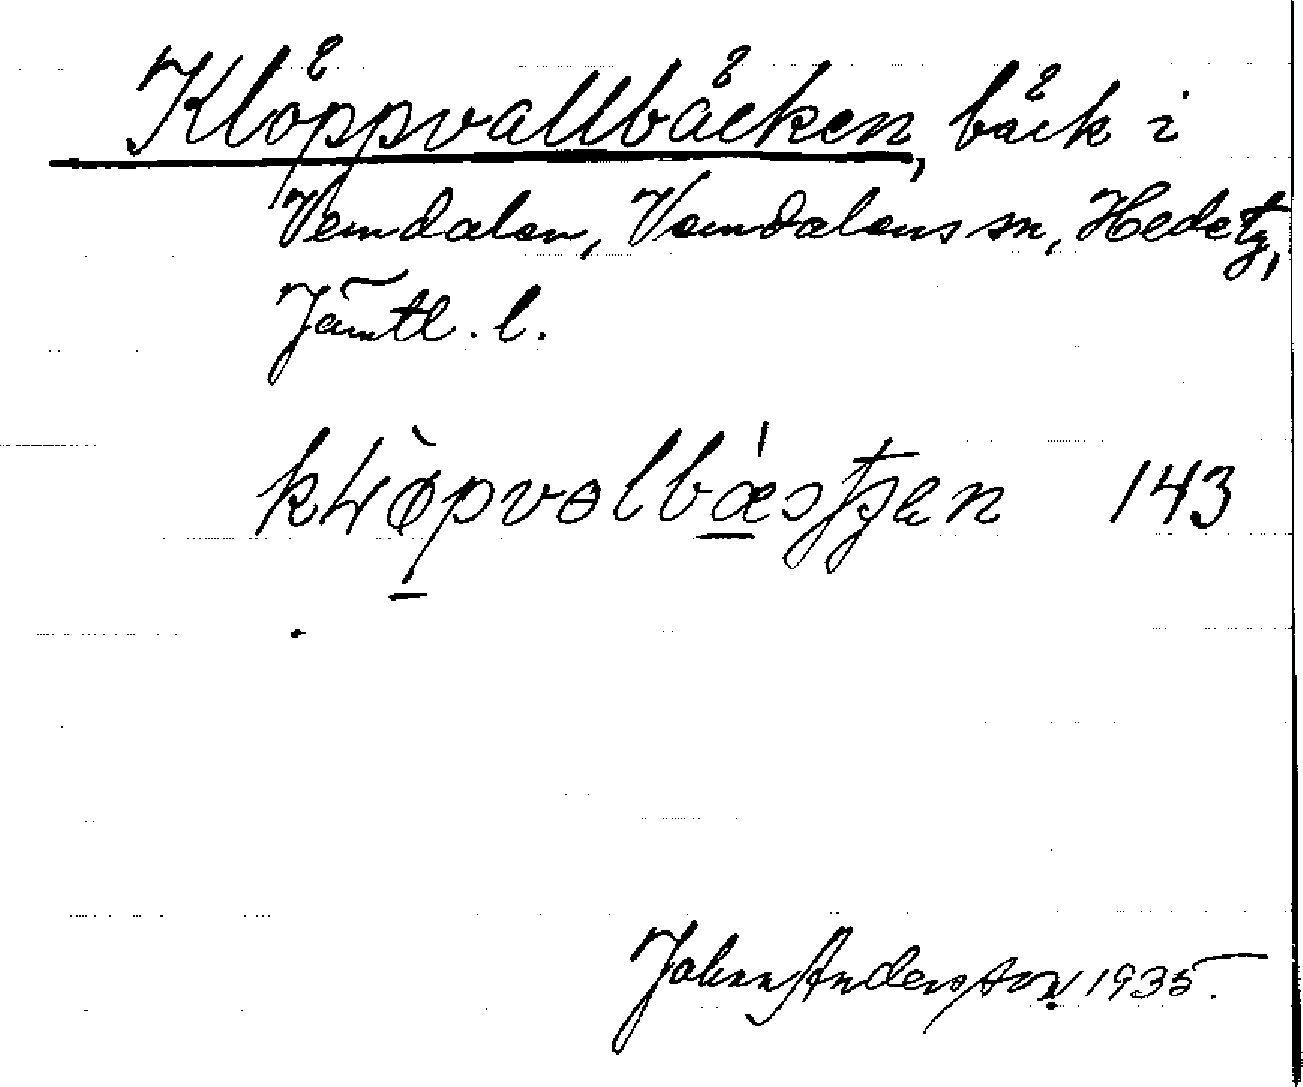 Klöppvallbäcken, bäck i
Vemdalen, Vemdalens sn, Hede tg,
Jämtl. l.
143
Johan Andersson 1935.